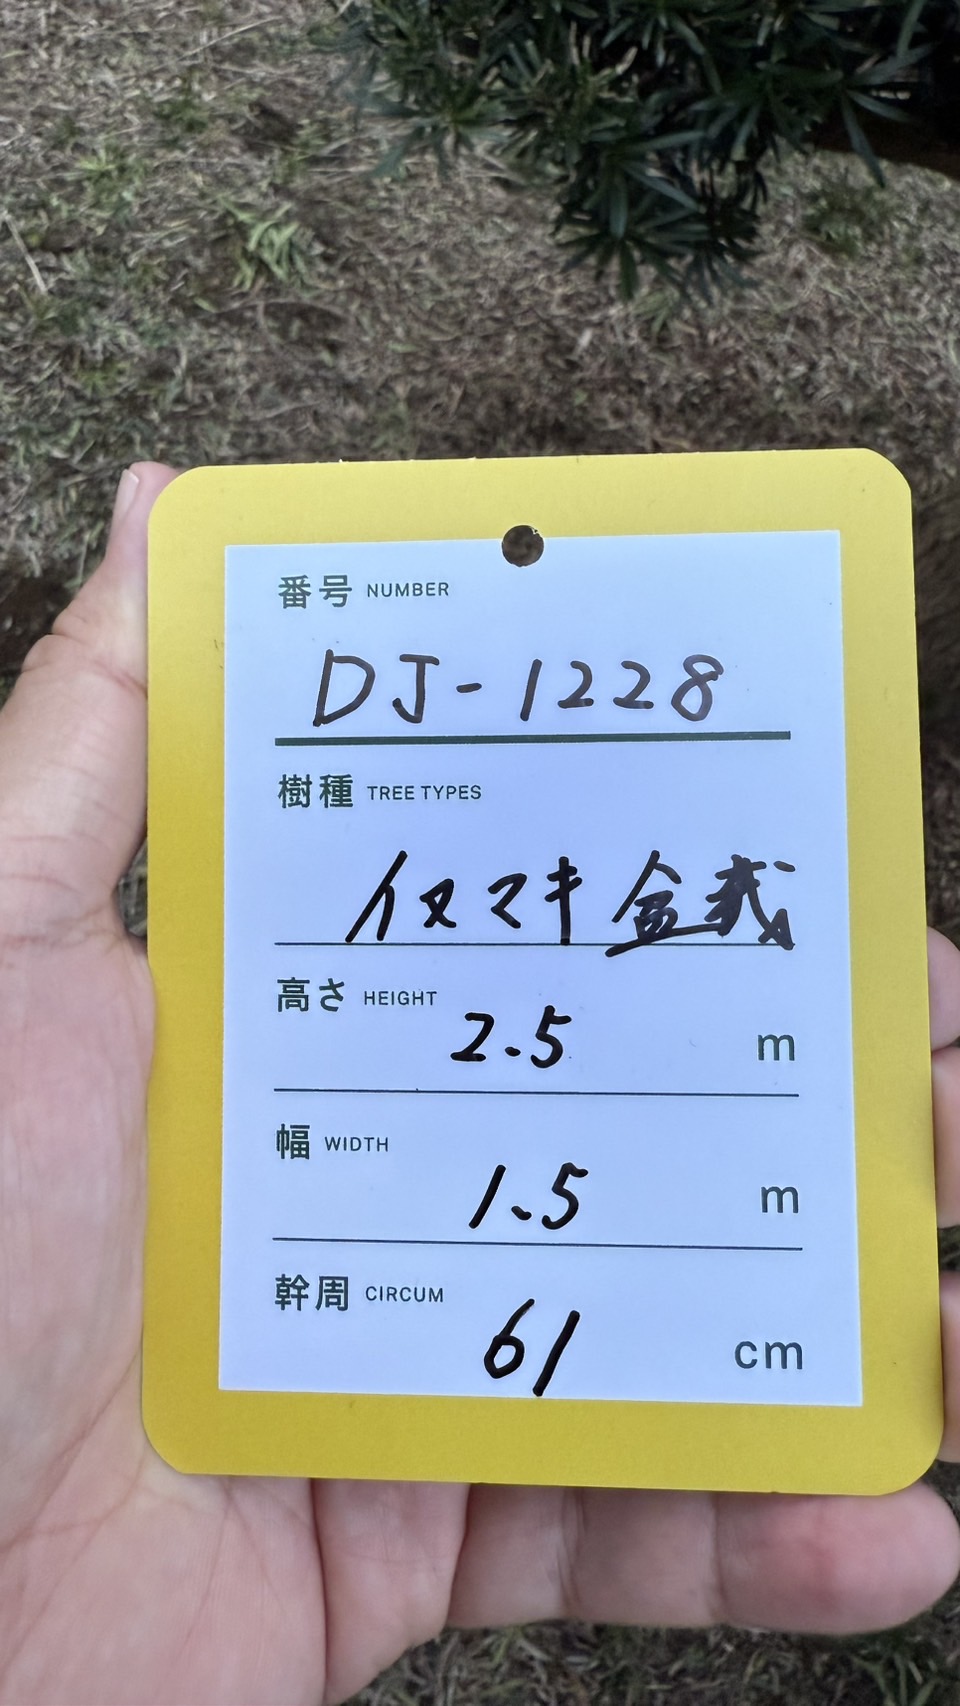 番号 NUMBER
DJ-1228
樹種 TREE TYPES
イヌマキ盆栽
高さ HEIGHT
2.5 m
幅 WIDTH
1.5 m
幹周 CIRCUM
61 cm